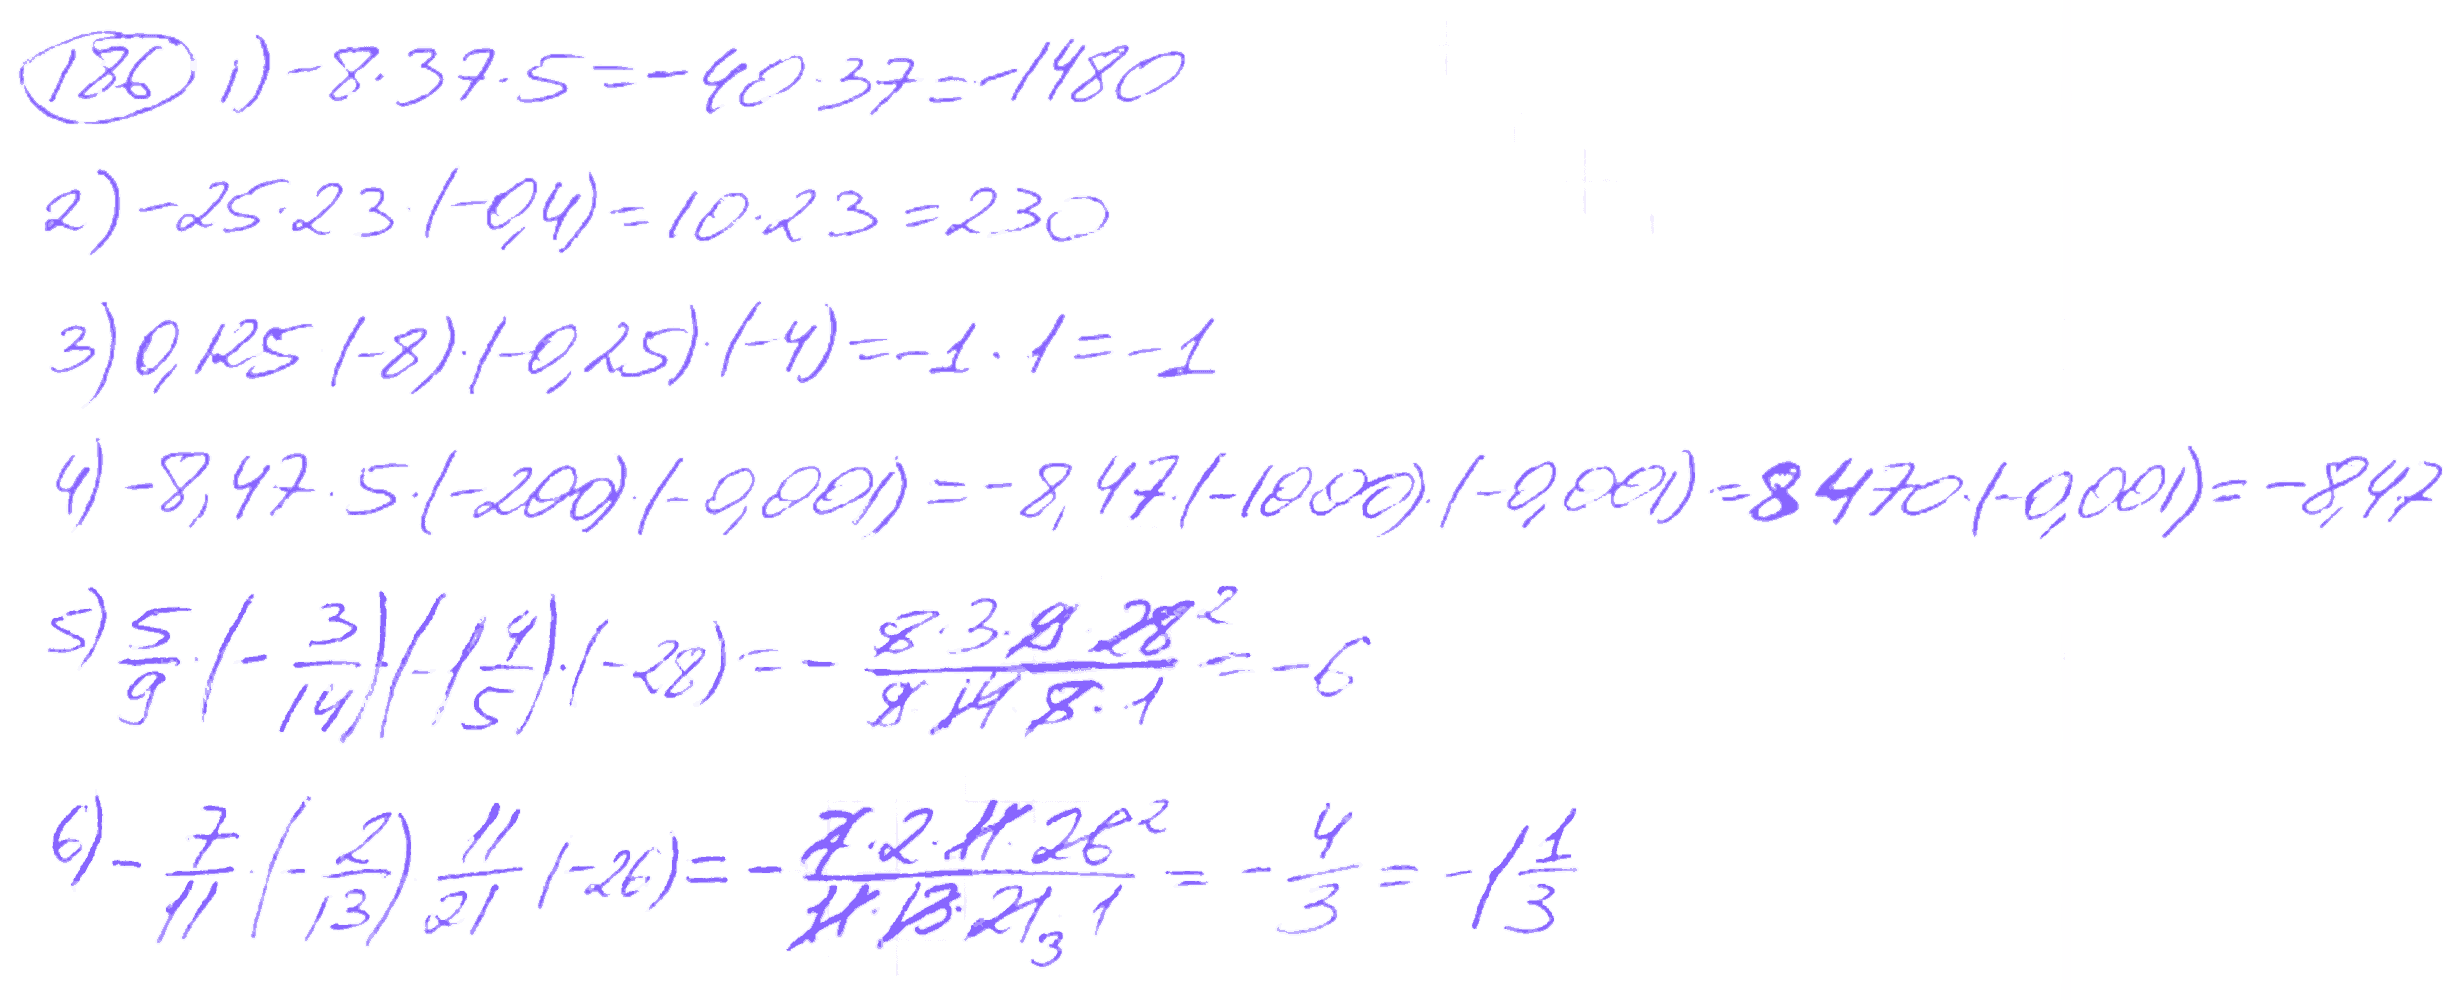 186 1) -8·37·5=-40·37=-1480
2) -25·23·(-0,4)=10·23=230
3) 0,125 (-8)·(-0,25)·(-4)=-1·1=-1
4) -8,47·5·(-200)·(-0,001)=-8,47·(-1000)·(-0,001)=8470·(-0,001)=-8,47
5) 5/9·(-3/14)·(-1 4/5)·(-28)=- 5·3·9·28²/9 14 5·1=-6
6) -7/11·(-2/13) 11/21 (-26)=- 7·2·11·26²/11·13·21₃ 1=-4/3=-1 1/3